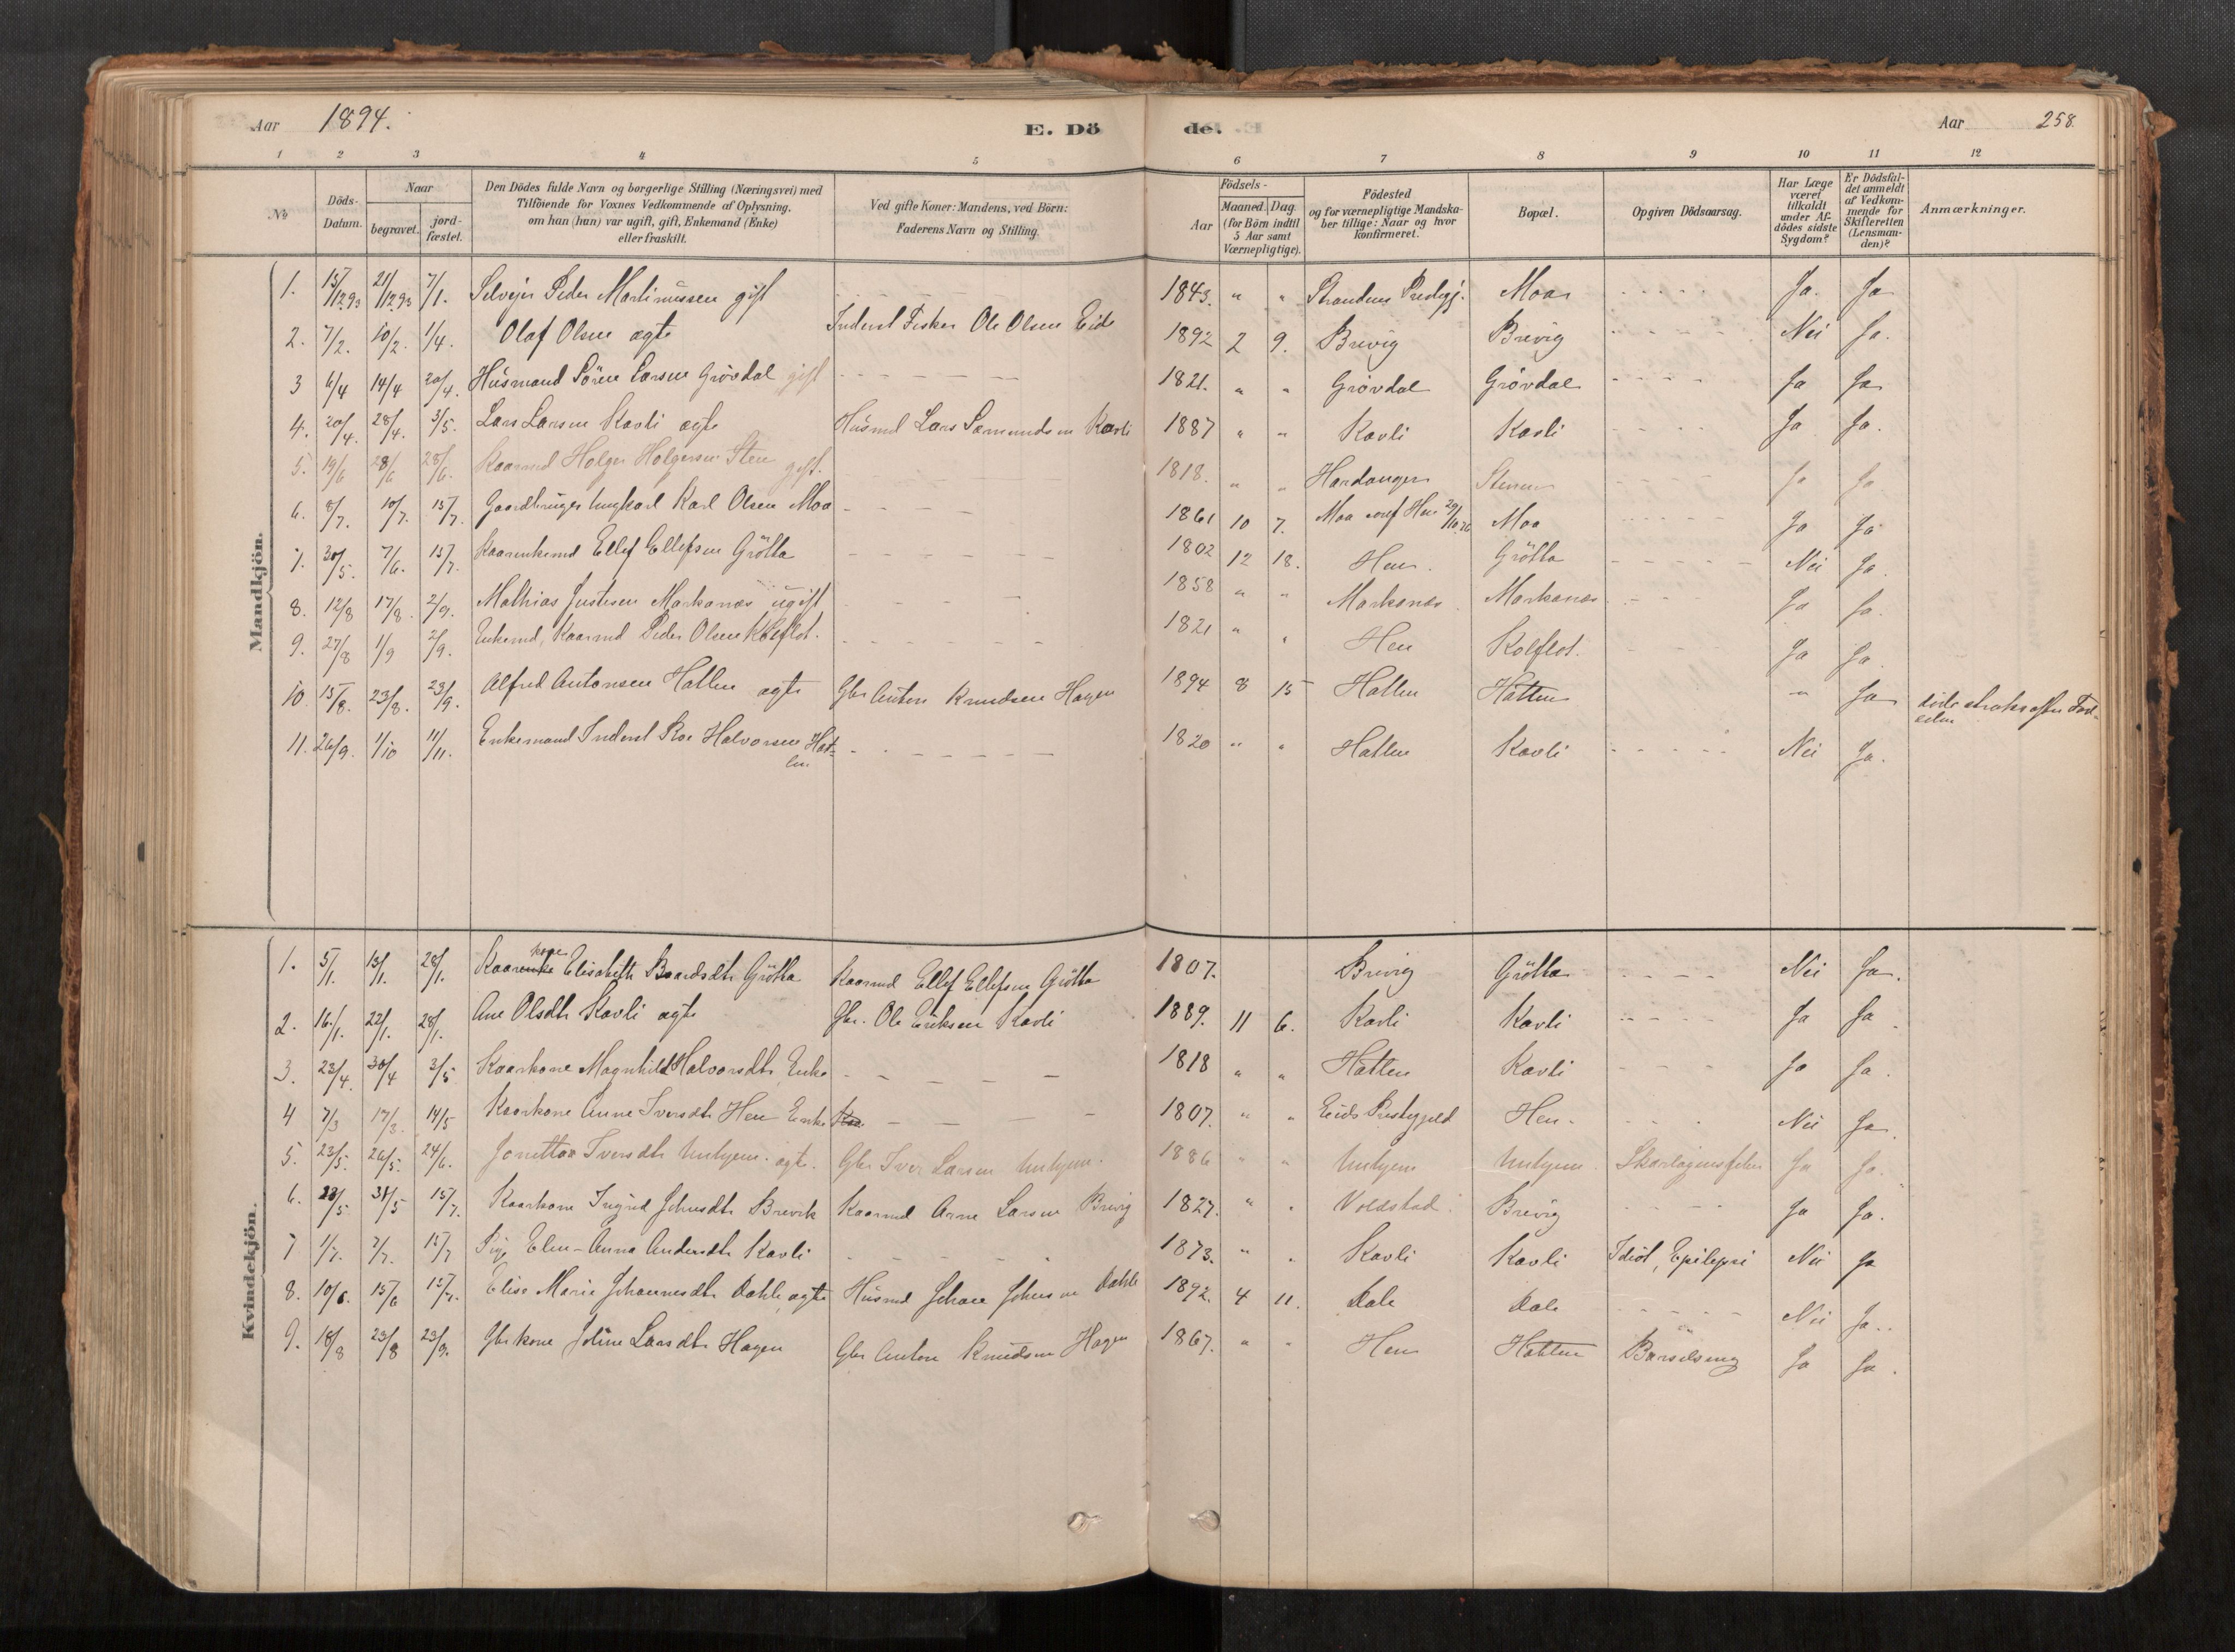 Aar 1894. E. Döde. Aar 258.
1 2 3 4 5 6 7 8 9 10 11 12
No
Döds-Datum.
Naar
begravet.
jord-fæstet.
Den Dödes fulde Navn og borgerlige Stilling (Næringsvei) med
Tilföiende for Voxnes Vedkommende af Oplysning.
om han (hun) var ugift, gift, Enkemand (Enke)
eller fraskilt.
Ved gifte Koner: Mandens, ved Börn:
Faderens Navn og Stilling.
Födsels-
Aar
Maaned. Dag.
(for Börn indtil
5 Aar samt
Værnepligtige).
Födested
og for værnepligtige Mandska-
ber tillige: Naar og hvor
konfirmeret.
Bopæl.
Opgiven Dödsaarsag.
Har Læge
været
tilkaldt
under Af-
dödes sidste
Sygdom?
Er Dödsfal-
det anmeldt
af Vedkom-
mende for
Skifteretten
(Lensman-
den)?
Anmærkninger.
Mandkjön.
1. 15/12 93 21/12 93 7/1. Selvejer Peder Martinussen gift - - - 1843. " " Strandens Prestgj. Moa - - - - Ja. Ja
2. 7/2. 10/2. 1/4. Olaf Olsen ægte Inderst Fisker Ole Olsen Eide 1892 2 9. Brevig Brevig - - - - Nei Ja.
3 6/4 14/4 20/4. Husmand Sören Larsen Grövdal gift - - - - 1821. " " Grövdal Grövdal - - - - Ja Ja
4. 20/4. 28/4. 3/5. Lars Larsen Kavli ægte Husmd Lars Samundsen Kavli 1887 " " Kavli Kavli - - - - Ja Ja.
5. 19/6 28/6 28/6. Kaarmd Holger Holgersen Sten gift. - - - - 1818. " " Hardanger Stenen - - - - Ja Ja
6. 8/7. 10/7. 15/7. Gaardbruger Ungkarl Karl Olsen Moa - - - - 1861 10 7. Moa conf Hen Moa - - - - Ja Ja
7. 30/5. 7/6. 15/7. Kaarenkemd Ellef Ellefsen Grötta - - - - 1802 12 18. Hen. Grötta - - - - Nei Ja
8. 12/8 17/8. 2/9. Mathias Justesen Markanæs ugift - - - 1858 " " Markanæs. Markanæs - - - Ja Ja.
9. 27/8 1/9 2/9. Enkemd, Kaarmd Peder Olsen Kolflot. - - - - 1821 " " Hen Kolflot. - - - Ja Ja.
10. 15/8. 23/8. 23/9. Alfred Antonsen Hatlen ægte Gbr Anton Knudsen Hagen 1894 8 15 Hatlen Hatlen " Ja döde straks efter Föd-
selen
11. 26/9. 1/10 11/11. Enkemand Inderst Roe Halvorsen Hat-
len - - - - 1820 " " Hatlen Kavli - - - - Nei Ja.
Kvindekjön.
1. 5/1. 13/1. 28/1. Kaarenke kone Elisabeth Baardsdtr Grötta Kaarmd Ellef Ellefsen Grötta 1807. Brevig Grötta - - - - Nei Ja.
2. 16/1. 22/1. 28/1. Ane Olsdtr Kavli ægte Gbr. Ole Eriksen Kavli 1889. 11 6. Kavli Kavli - - - - Ja Ja
3. 23/4. 30/4 3/5 Kaarkone Magnhild Halvorsdtr Enke - - - - 1818 " " Hatlen Kavli - - - Ja Ja.
4 7/3 17/3. 14/5 Kaarkone Anne Iversdtr Hen Enke - - - 1807. " " Eids Prestegjeld Hen. - - - Nei Ja
5. 23/5. 26/5. 24/6. Jonetta Iversdtr Unhjem. ægte. Gbr Iver Larsen Unhjem. 1886 " " Unhjem Unhjem. Skarlagensfeber Ja Ja.
6. 28/5. 31/5 15/7. Kaarkone Ingrid Johnsdtr Brevik Kaarmd Arne Larsen Brevig 1827. " " Voldstad. Brevig - - - - Ja Ja.
7 1/7. 7/7. 15/7 Pige Elen-Anna Andersdtr Kavli - - - - 1873. " " Kavli Kavli Idiot, Epilepsi Nei Ja
8. 10/6. 15/6 15/7. Elise Marie Johannesdtr Dahle ægte Husmd Johan Johnsen Dahle 1892. 4 11. Dale Dale - - - - Nei Ja.
9. 18/8 23/8 23/9. Gbr kone Joline Larsdtr Hagen Gbr Anton Knudsen Hagen 1867. " " Hen Hatlen Barselseng Ja Ja.